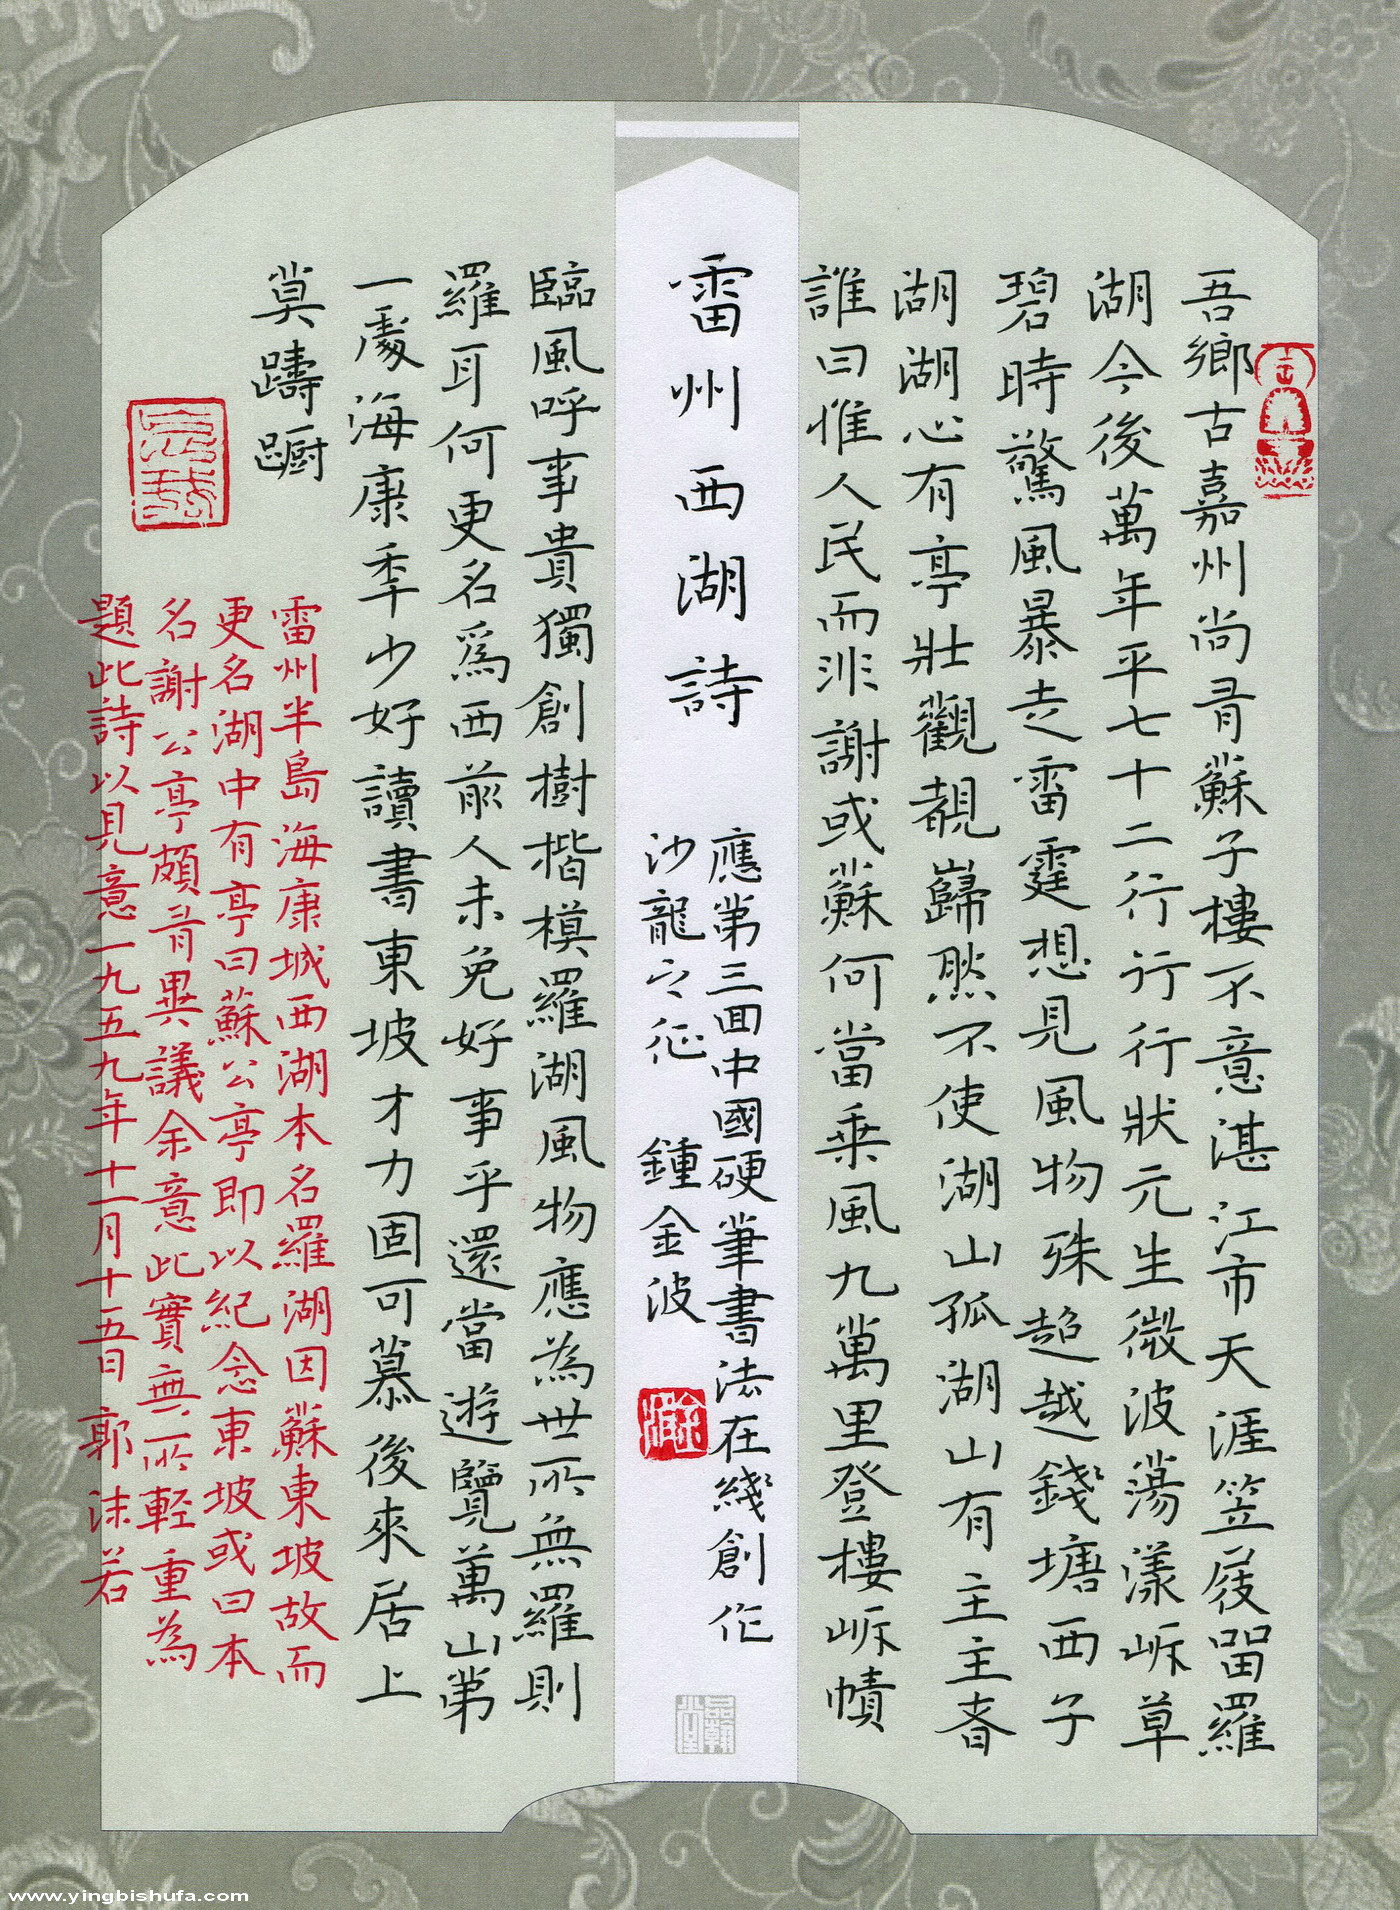 吾鄉古嘉州尚有蘇子樓不意湛江市天涯笠屐留羅
湖今後萬年平七十二行行行狀元生微波蕩漾岍草
碧時驚風暴走雷霆想見風物殊超越錢塘西子
湖湖心有亭壯觀覩巋然不使湖山孤湖山有主主者
誰曰惟人民而非謝或蘇何當乘風九萬里登樓岍幘
雷州西湖詩
應第三回中國硬筆書法在綫創作
沙龍之征 鍾金波
臨風呼事貴獨創樹楷模羅湖風物應為世所無羅則
羅耳何更名為西前人未免好事乎還當遊覽萬山第
一處海康季少好讀書東坡才力固可慕後來居上
莫躊躕
雷州半島海康城西湖本名羅湖因蘇東坡故而
更名湖中有亭曰蘇公亭即以紀念東坡或曰本
名謝公亭頗有異議余意此實無所輕重為
題此詩以見意一九五九年十一月十五日 郭沫若
www.yingbishufa.com